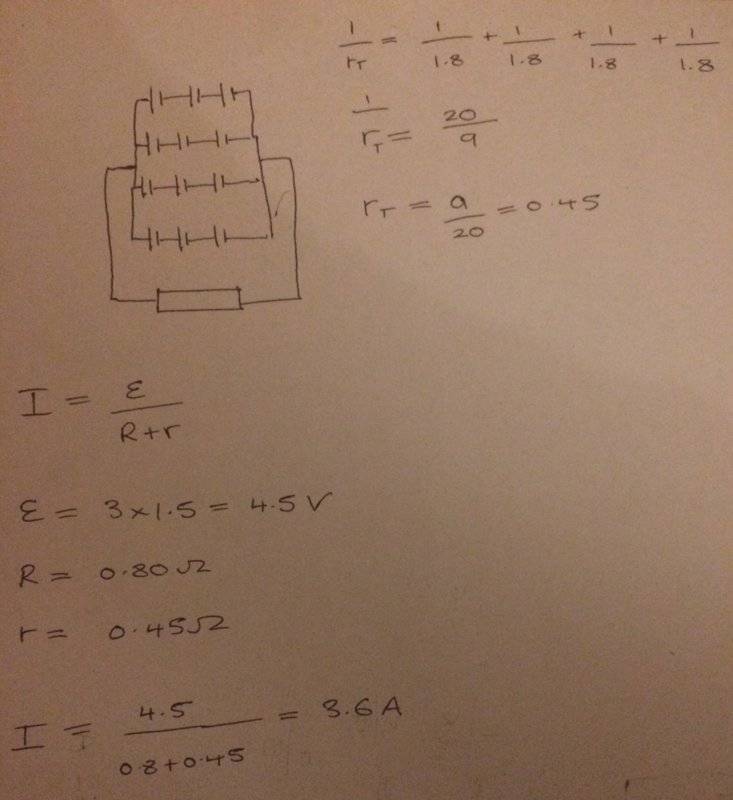 1/rT = 1/1.8 + 1/1.8 + 1/1.8 + 1/1.8
1/rT = 20/9
rT = 9/20 = 0.45
I = ε/R+r
ε = 3×1.5 = 4.5 V
R = 0.80Ω
r = 0.45Ω
I = 4.5/0.8+0.45 = 3.6 A